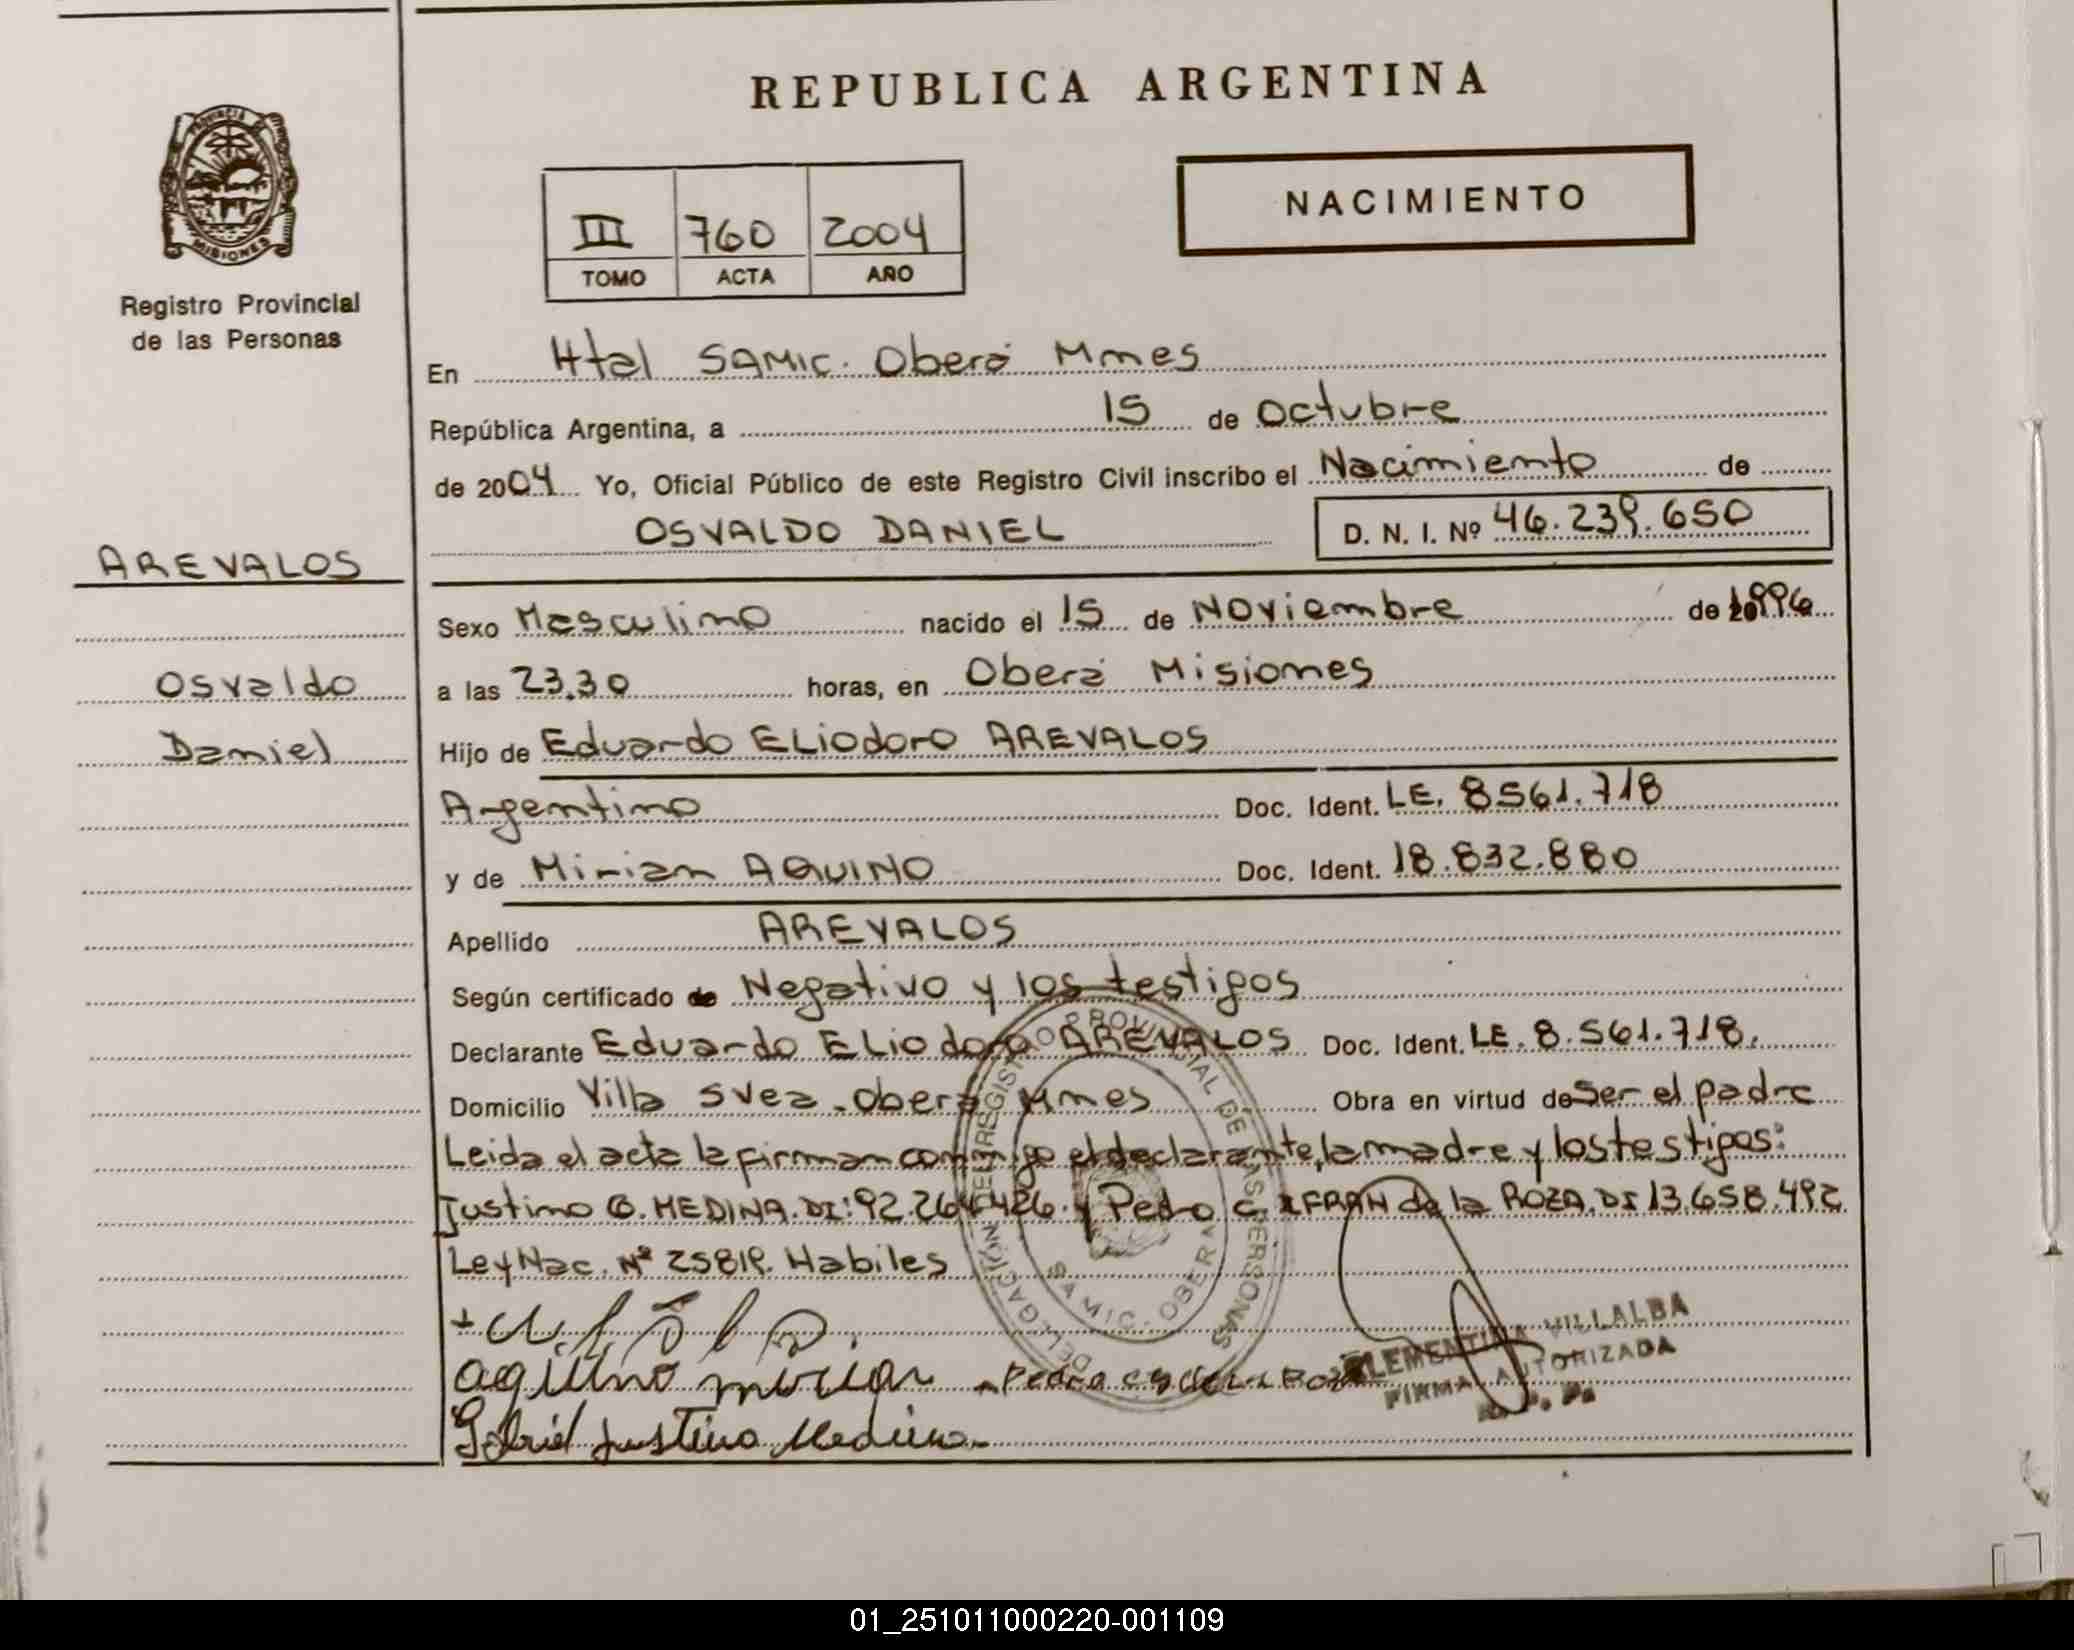 REPUBLICA ARGENTINA
NACIMIENTO
III 760 2004
TOMO ACTA AÑO
PROVINCIA DE MISIONES
Registro Provincial
de las Personas
En Htal SAMIC. Oberá Mnes
República Argentina, a 15 de octubre
de 2004 Yo, Oficial Público de este Registro Civil inscribo el Nacimiento de
OSVALDO DANIEL D. N. I. Nº 46.239.650
AREVALOS
Osvaldo
Daniel
Sexo Masculino nacido el 15 de Noviembre de 1996
a las 23.30 horas, en Oberá Misiones
Hijo de Eduardo ELiodoro AREVALOS
Argentino Doc. Ident. LE. 8561.718
y de Mirian AQUINO Doc. Ident. 18.832.880
Apellido AREVALOS
Según certificado de Negativo y los testigos
Declarante Eduardo ELiodoro AREVALOS Doc. Ident. LE. 8.561.718.
Domicilio Villa Svea - Oberá Mnes Obra en virtud de Ser el padre
Leida el acta la firman conmigo el declarante, la madre y los testigos:
Justino G. MEDINA. DI: 92.264.426. y Pedro C. de la ROZA. DI 13.658.492
Ley Nac. Nº 25819. Habiles
REGISTRO PROVINCIAL DE LAS PERSONAS
DELEGACIÓN
SAMIC. OBERA
aquino mirian
Pedro
CLEMENTINA VILLALBA
FIRMA AUTORIZADA
R. P. P.
Gabriel Justino Medina
01_251011000220-001109